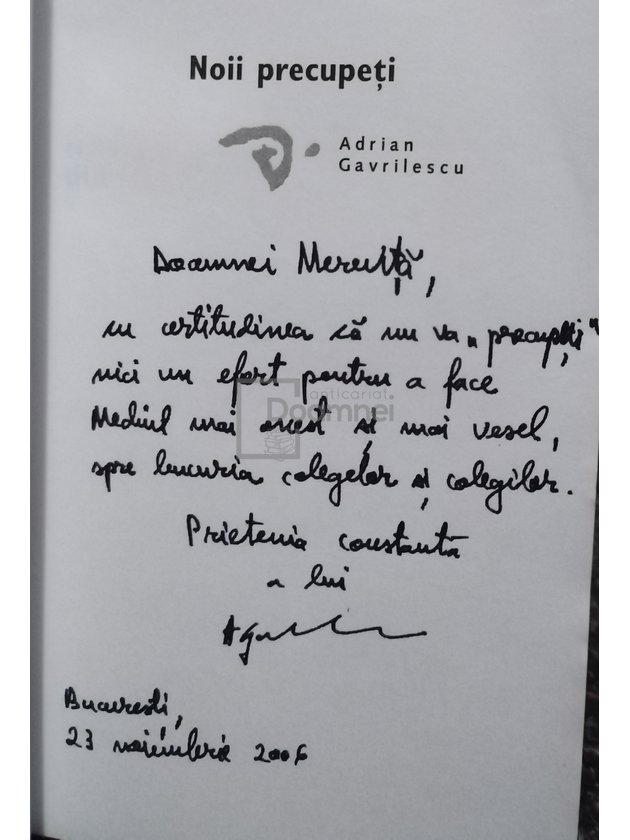 Noii precupeți
Adrian
Gavrilescu
Doamnei Meruță,
cu certitudinea că nu va „precupeți"
nici un efort pentru a face
anticariat
Doamnei
Mediul mai onest și mai vesel,
spre bucuria colegelor și colegilor.
Prietenia constantă
a lui
București,
23 noiembrie 2006